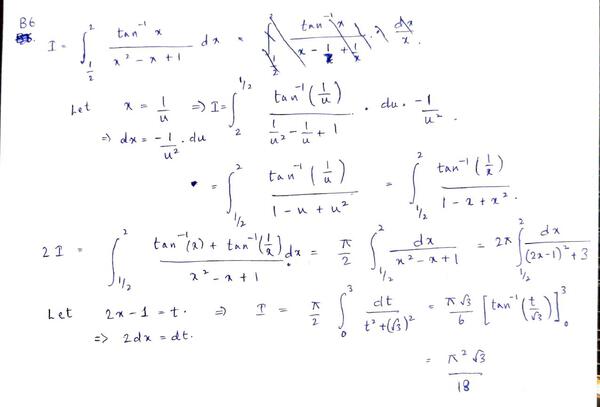 B6
I = ∫_{1/2}^{2} tan⁻¹ x / (x² − x + 1) dx =
Let x = 1/u ⇒ I = ∫_{2}^{1/2} tan⁻¹(1/u) / (1/u² − 1/u + 1) · du · −1/u².
⇒ dx = −1/u² . du
= ∫_{1/2}^{2} tan⁻¹(1/u) / (1 − u + u²) = ∫_{1/2}^{2} tan⁻¹(1/x) / (1 − x + x²).
2I = ∫_{1/2}^{2} (tan⁻¹(x) + tan⁻¹(1/x)) / (x² − x + 1) dx = π/2 ∫_{1/2}^{2} dx / (x² − x + 1) = 2π ∫_{1/2}^{2} dx / ((2x−1)² + 3)
Let 2x − 1 = t. ⇒ I = π/2 ∫_{0}^{3} dt / (t² + (√3)²) = π√3/6 [tan⁻¹(t/√3)]_{0}^{3}
⇒ 2dx = dt.
= π²√3/18